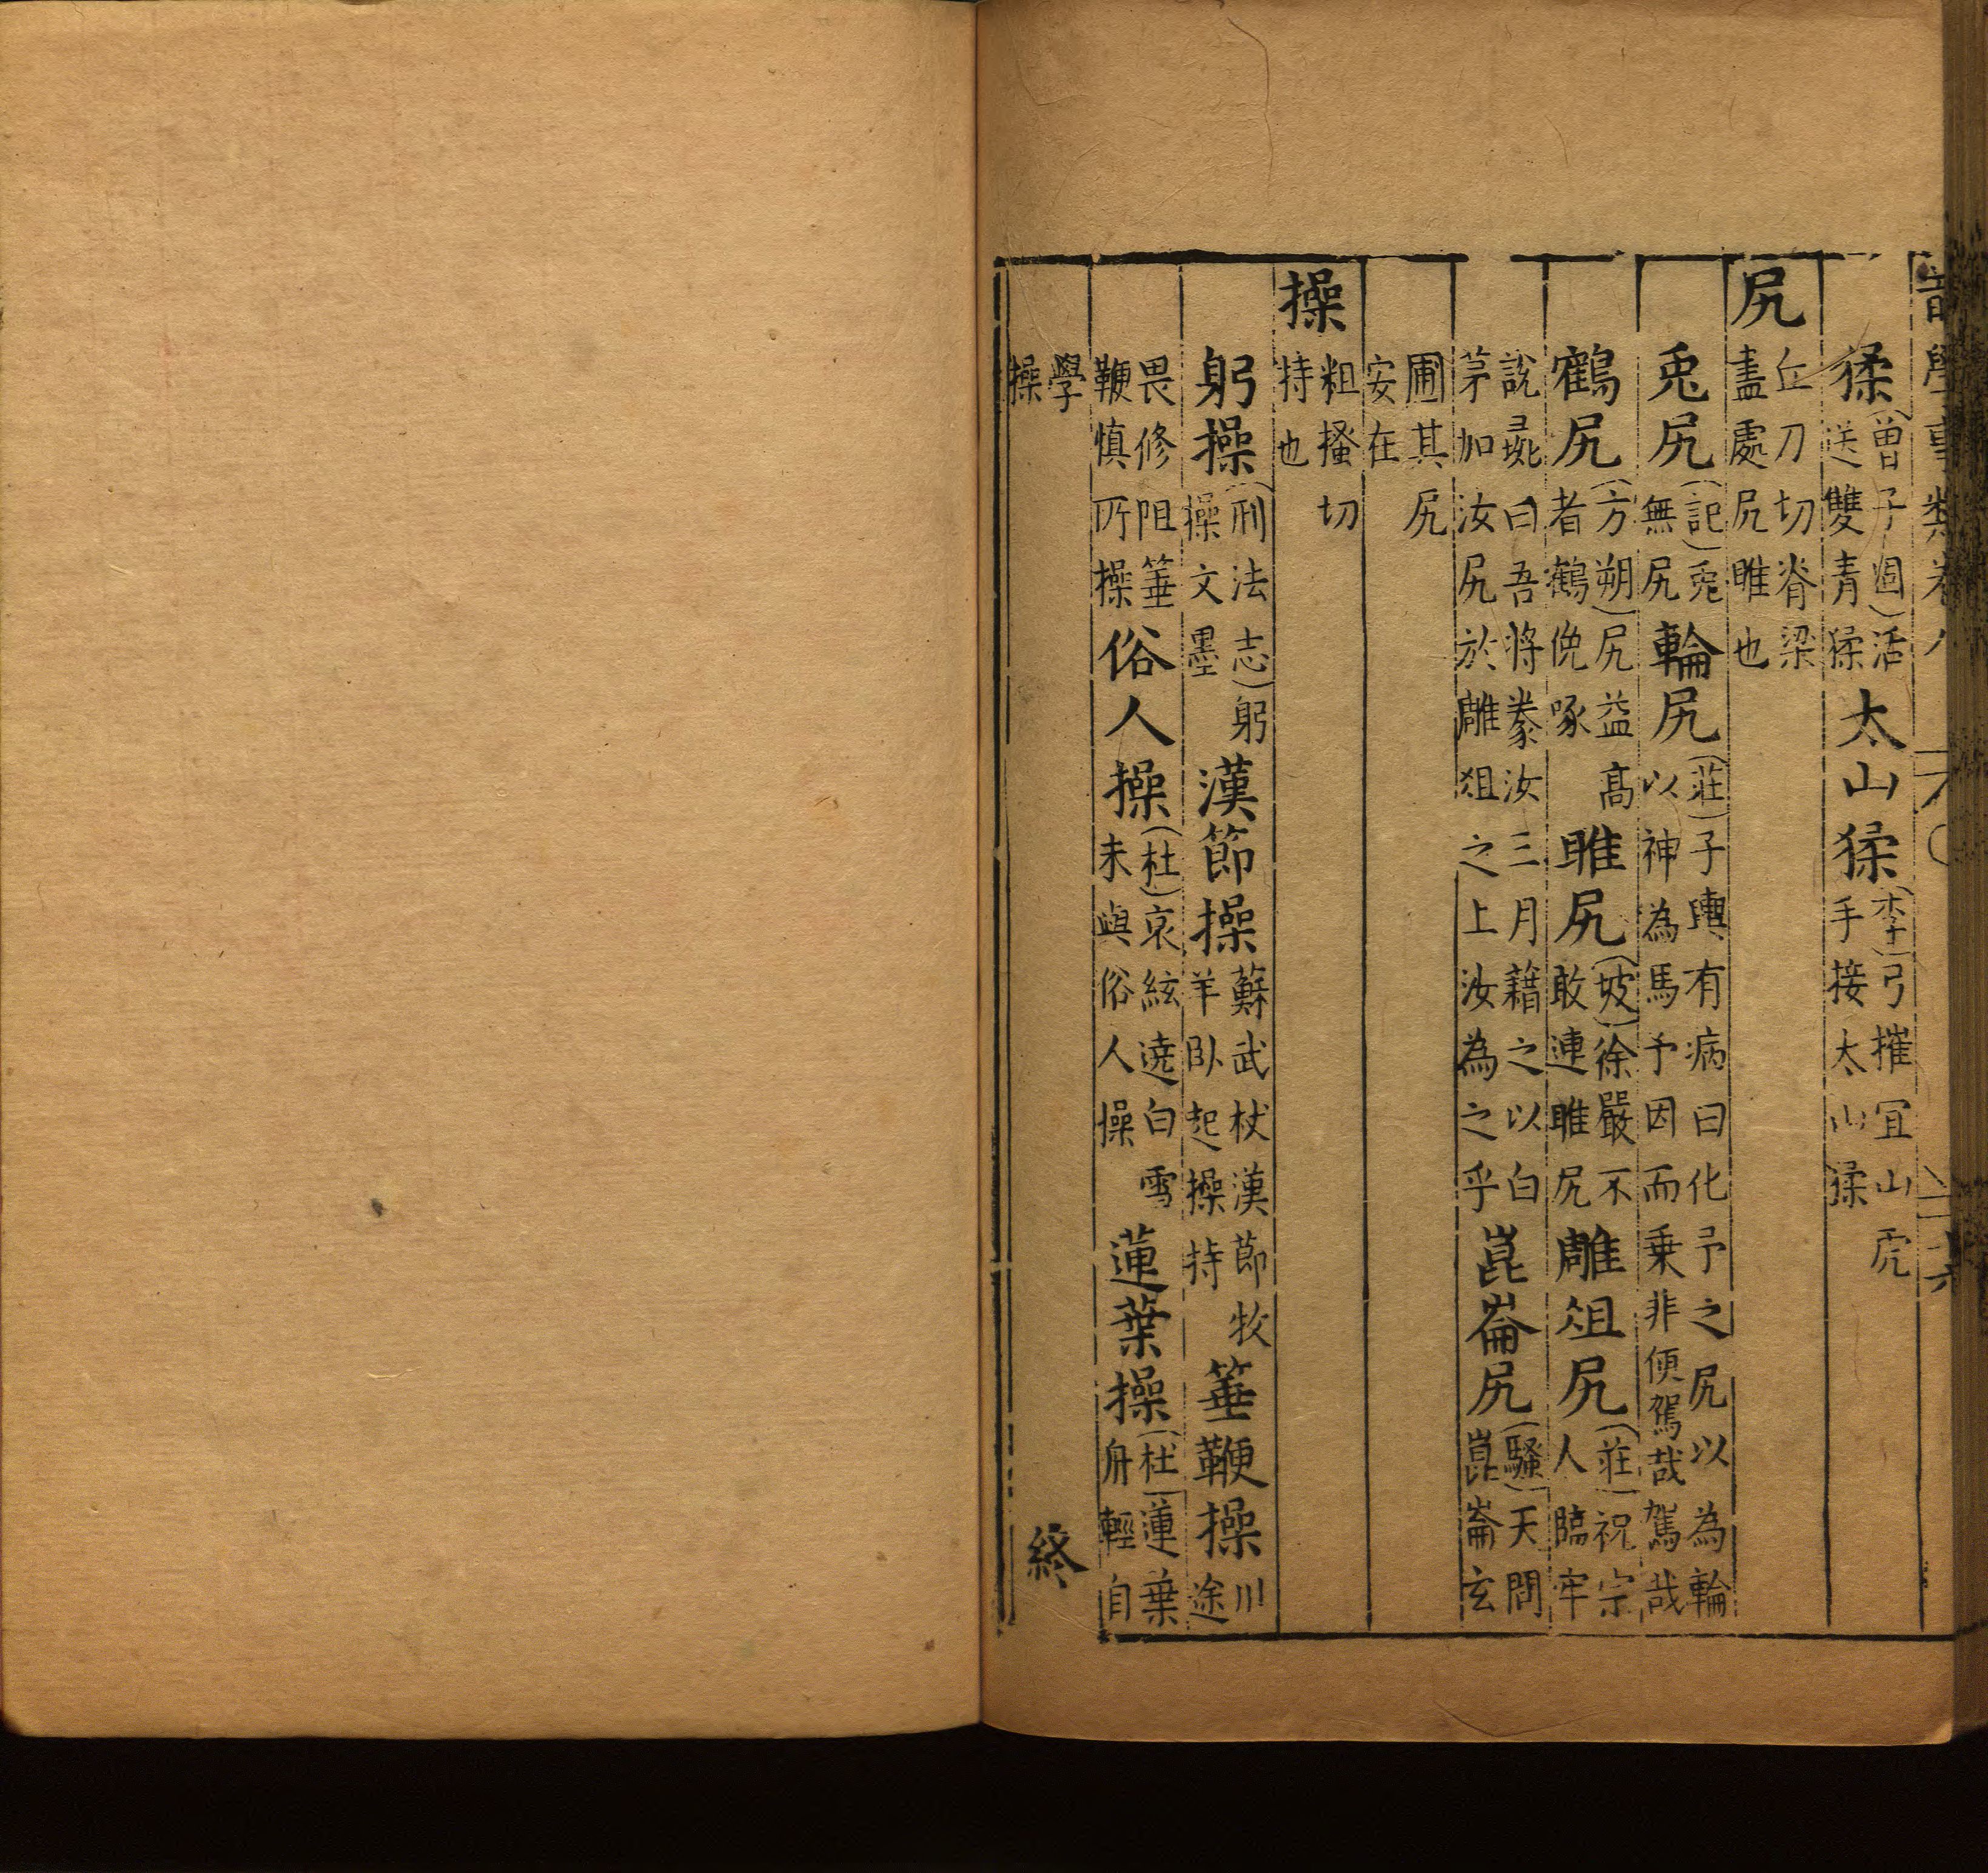 學事類卷
猱(曾子迴)活送雙青猱太山猱(李)弓摧冝山虎手接太山猱
尻丘刀切脊梁盡處尻雎也
兎尻(記)兎無尻輪尻(莊)子輿有病曰化予之尻以為輪以神為馬予因而乗非便駕哉駕哉
鶴尻(方朔)尻益髙者鶴俛啄雎尻(坡)徐嚴不敢連雎尻雕俎尻(莊)祝宗人臨牢
說彘曰吾將豢汝三月藉之以白茅加汝尻於雕俎之上汝為之乎崑崙尻(騷)天問崑崙玄
圃其尻安在
操粗搔切持也
躬操(刑法志)躬操文墨漢節操蘇武杖漢節牧羊臥起操持箠鞭操川途
畏修阻箠鞭慎所操俗人操(杜)哀絃遶白雪未與俗人操蓮葉操(杜)蓮葉舟輕自
學操終